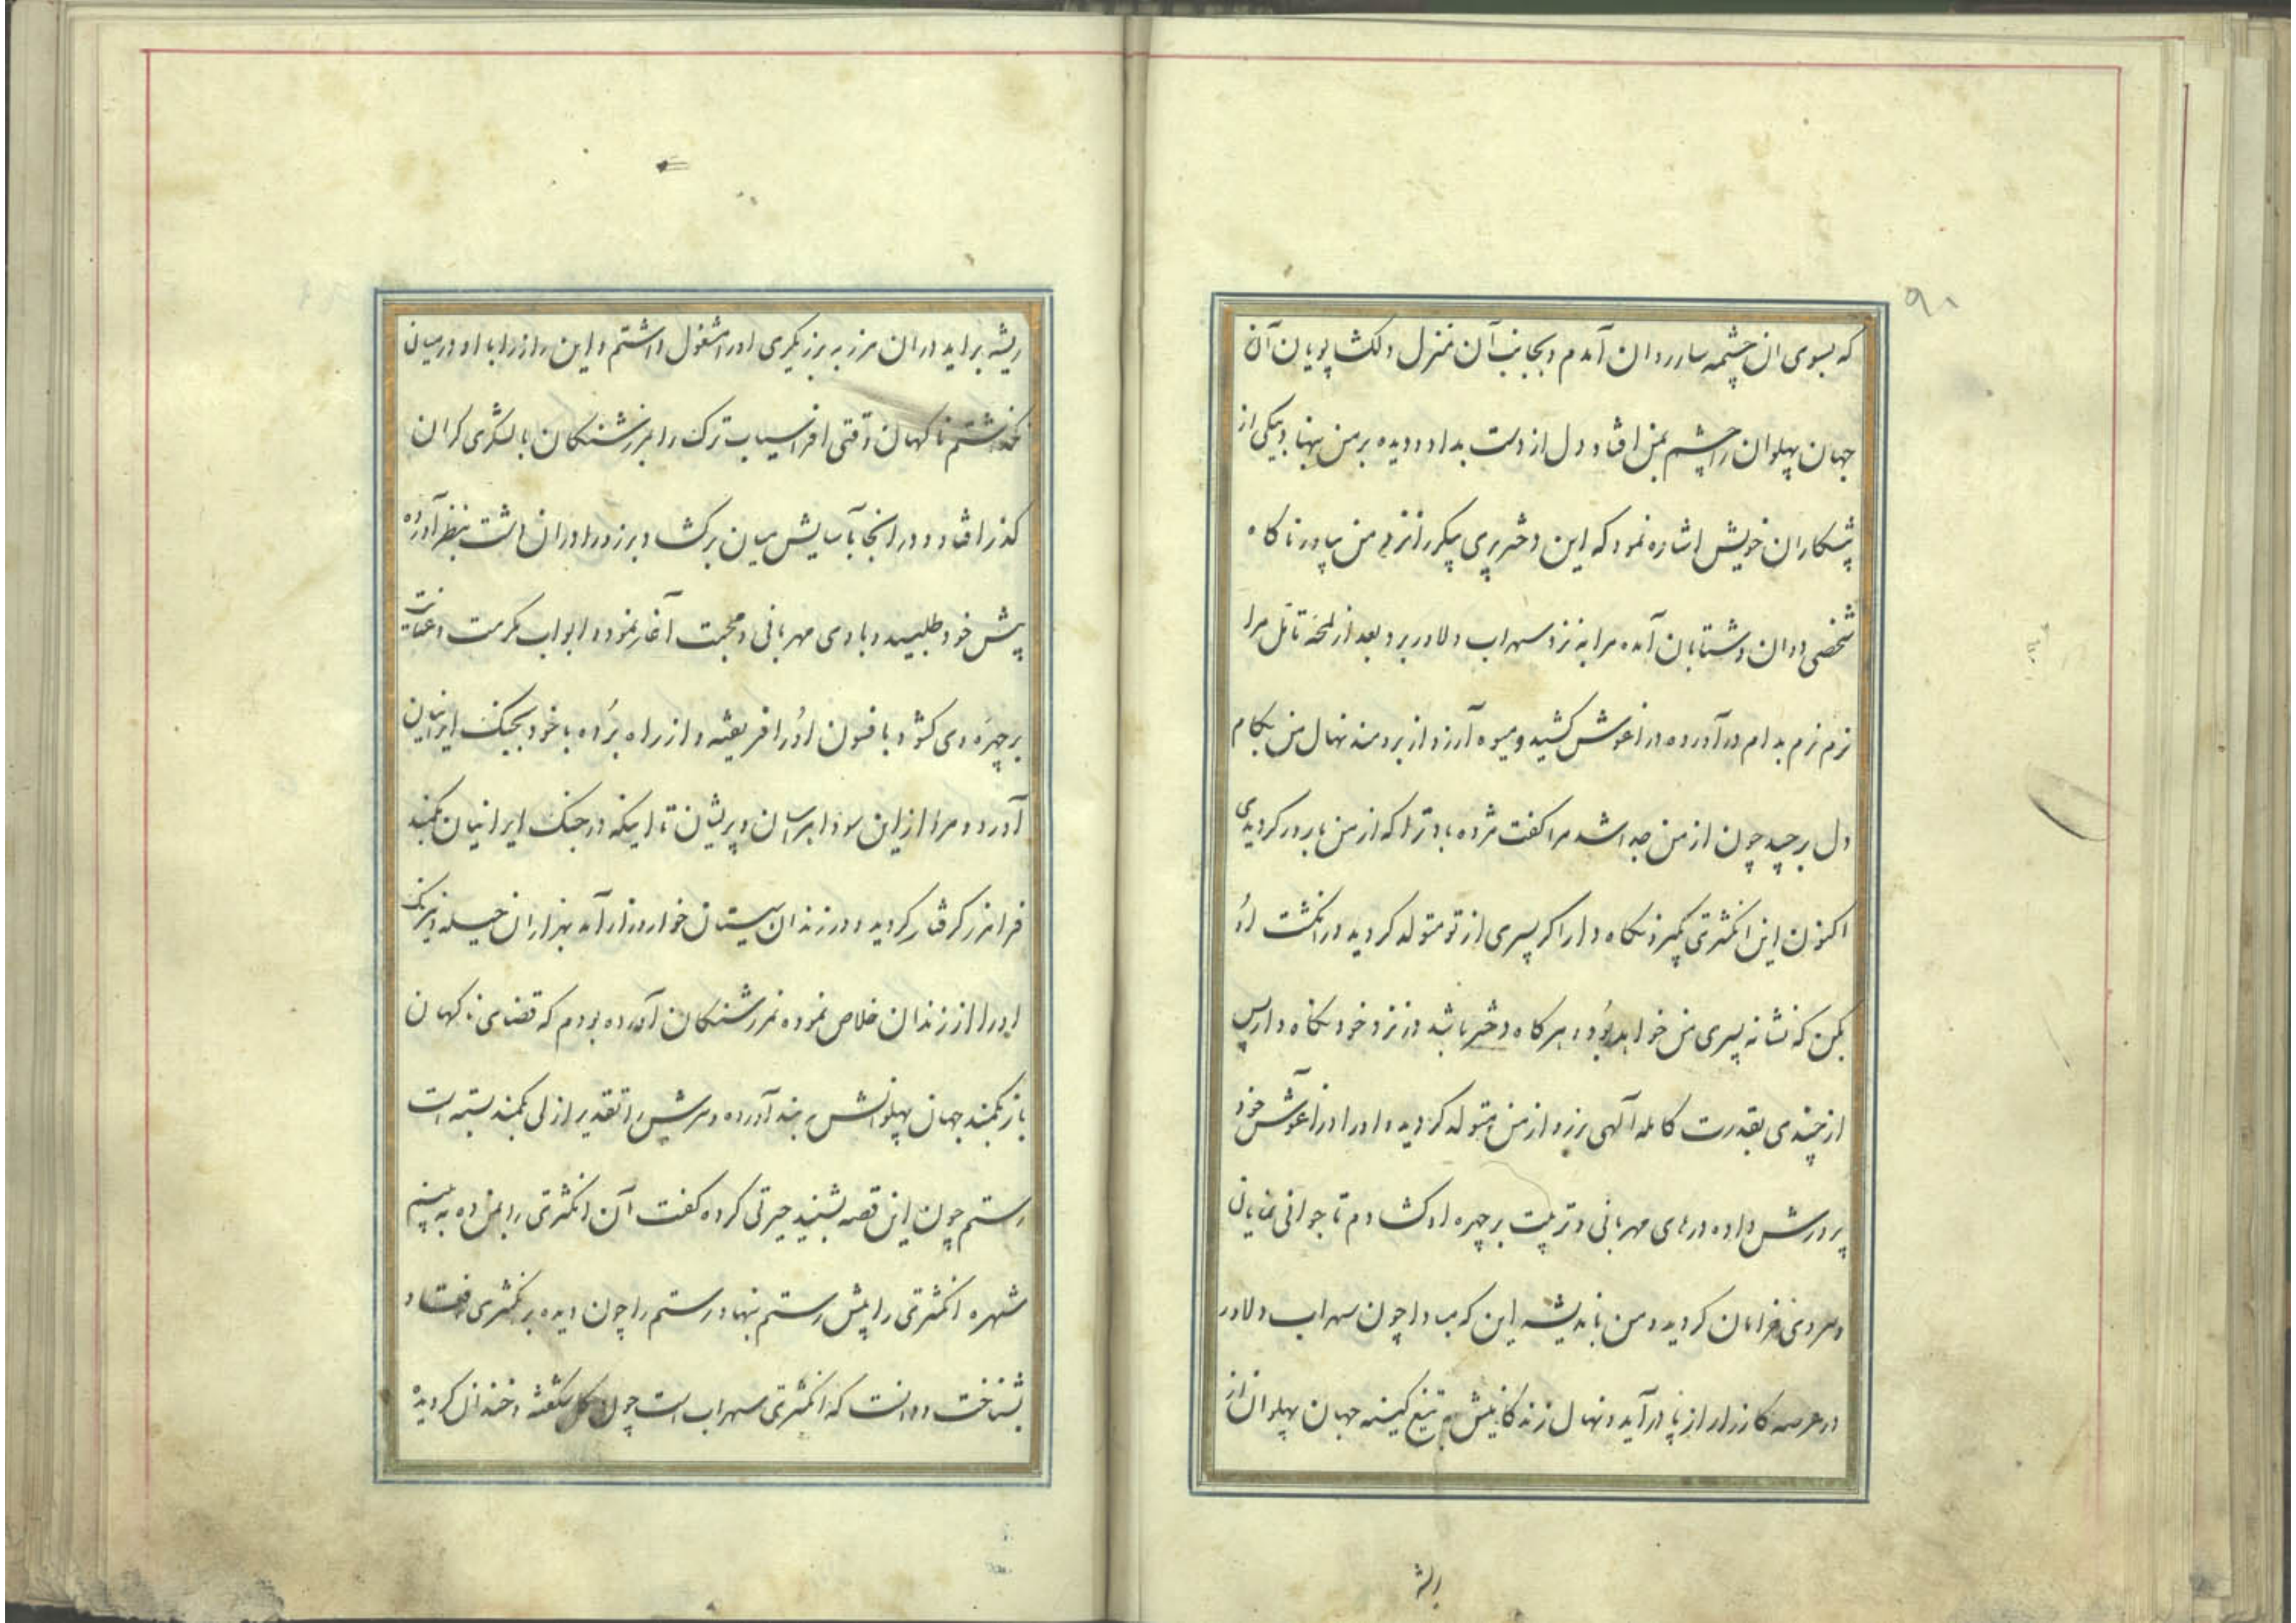 ۹۸
که بسوی ان چشمه سار روان آمدم و بجانب آن منزل دلکش پویان آن
جهان پهلوان را چشم بمن افتاد و دل از دست بداد و دیده بر من بنهاد بیکی از
پیشکاران خویش اشاره نمود که این دختر پری پیکر را نزد من بیاور ناگاه
شخصی دوان و شتابان آمده مرا به نزد سهراب دلاور برد بعد از لمحه تامل مرا
نرم نرم بدام در آورده در اغوش کشید و میوه آرزو از برومند نهال من بکام
دل بر چید چون از من جدا شد مرا کفت مژده باد ترا که از من بارور کردیدی
اکنون این انکشتری بکیر و نکاه دار اکر پسری از تو متولد کردید در انکشت او
بکن که نشانه پسری من خواهد بود و هر کاه دختر باشد در نزد خود نکاه دار پس
از چندی بقدرت کامله آلهی برزو از من متولد کردیده او را در آغوش خود
پرورش داده درهای مهربانی و تربیت بر چهره او کشادم تا جوانی نمایان
و سروی خرامان کردید و من باندیشه این که مبادا چون سهراب دلاور
در عرصه کارزار از پا در آید و نهال زندکانیش به تیغ کینه جهان پهلوان از
ریشه
ریشه براید در ان مرز به برزیکری او را مشغول داشتم و این راز را با او در میان
نکذاشتم ناکهان وقتی افراسیاب ترک را بمرز شنکان با لشکری کران
کذر افتاد و در انجا بآسایش میان برکشاد برزو را در ان دشت بنظر آورده
پیش خود طلبید و با وی مهربانی و محبت آغاز نمود و ابواب مکرمت و عنایت
بر چهره وی کشود با فسون او را فریفته و از راه برده با خود بجنک ایرانیان
آورد و مرا از این سودا هراسان و پریشان تا اینکه در جنک ایرانیان بکمند
فرامرز کرفتار کردید و در زندان سیستان خوار و زار آمد بهزاران حیله و نیرنک
او را از زندان خلاص نموده بمرز شنکان آورده بودم که قضای ناکهان
باز بکمند جهان پهلوانش به بند آورده و سرش را تقدیر ازلی بکمند بسته است
رستم چون این قصه بشنید حیرتی کرده کفت آن انکشتری را بمن ده به بینم
شهره انکشتری را پیش رستم بنهاد رستم را چون دیده بر انکشتری افتاد
بشناخت و دانست که انکشتری سهراب است چون کل بشکفته و خندان کردیده